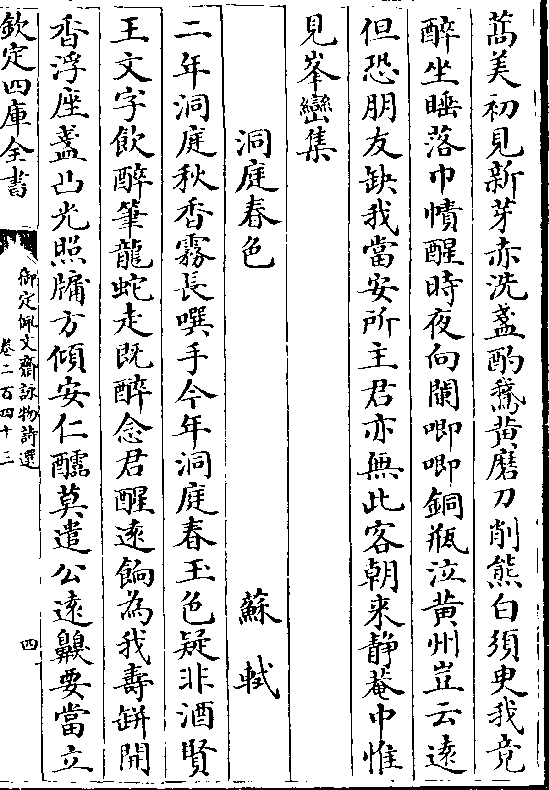 蒿美初見新芽赤洗盞酌鵝黃磨刀削熊白須臾我竟
醉坐睡落巾幘醒時夜向闌唧唧銅瓶泣黃州豈云遠
但恐朋友缺我當安所主君亦無此客朝来静菴中惟
見峯巒集
洞庭春色
蘇軾
二年洞庭秋香霧長噀手今年洞庭春玉色疑非酒賢
王文字飲醉筆龍蛇走既醉念君醒逺餉為我壽缾開
香浮座盞凸光照牖方傾安仁醽莫遣公逺嗅要當立
欽定四庫全書
御定佩文齋詠物詩選
卷二百四十三
四